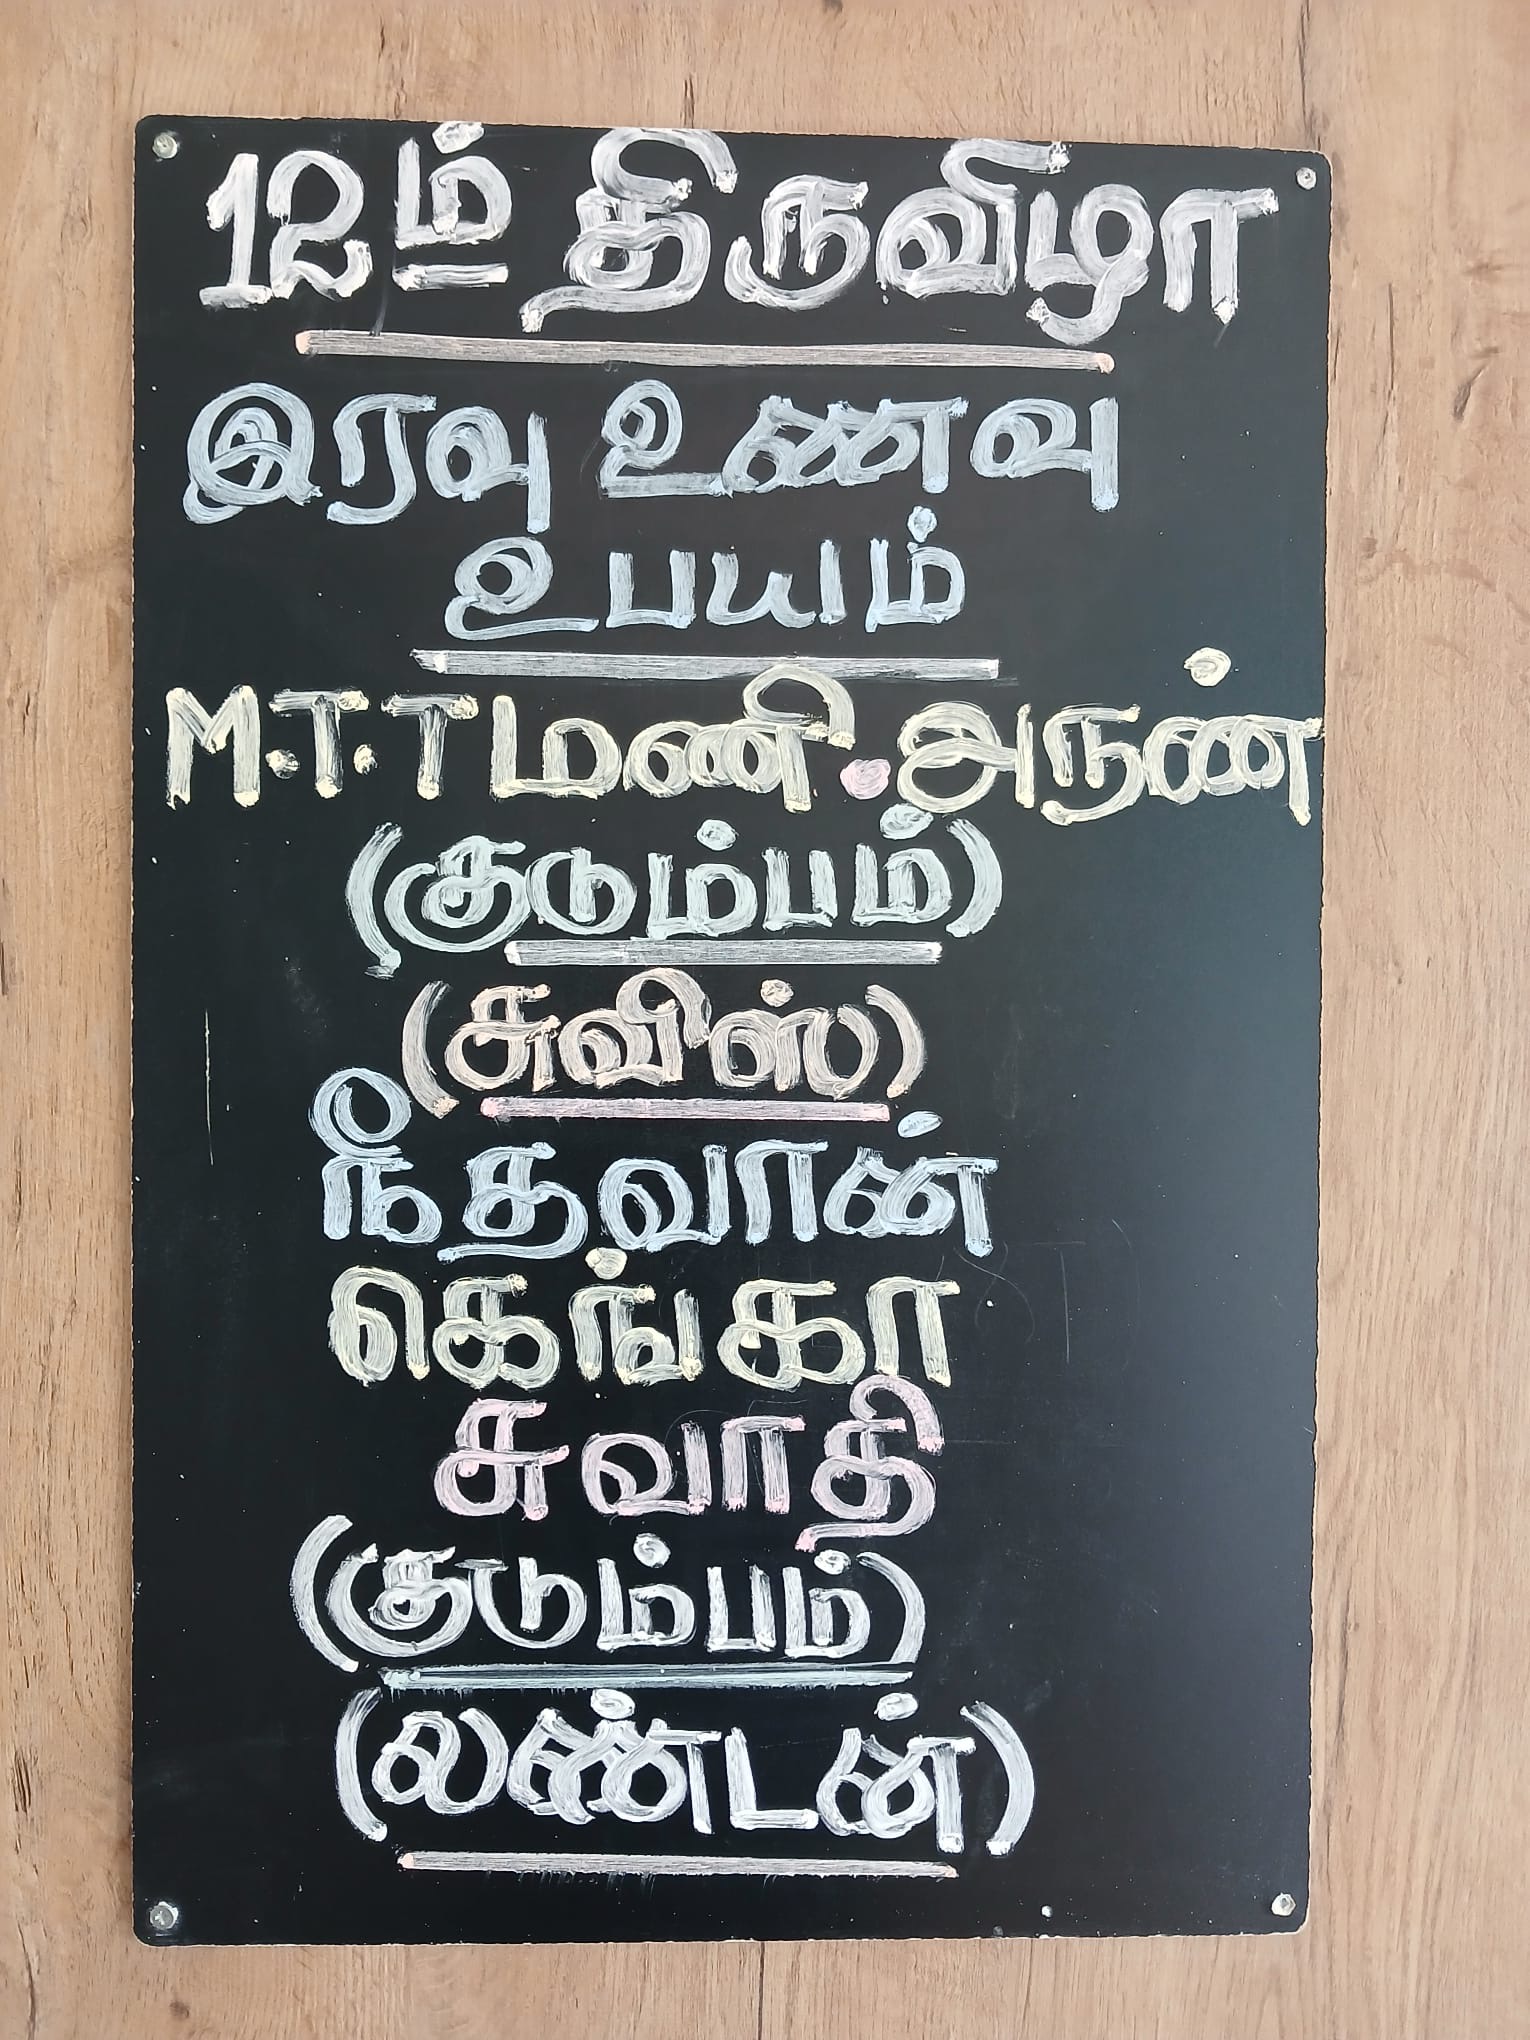 12ம் திருவிழா
இரவு உணவு
உபயம்
M.T.T மணி.அருண்
(குடும்பம்)
(சுவிஸ்)
நீதவான்
கெங்கா
சுவாதி
(குடும்பம்)
(லண்டன்)